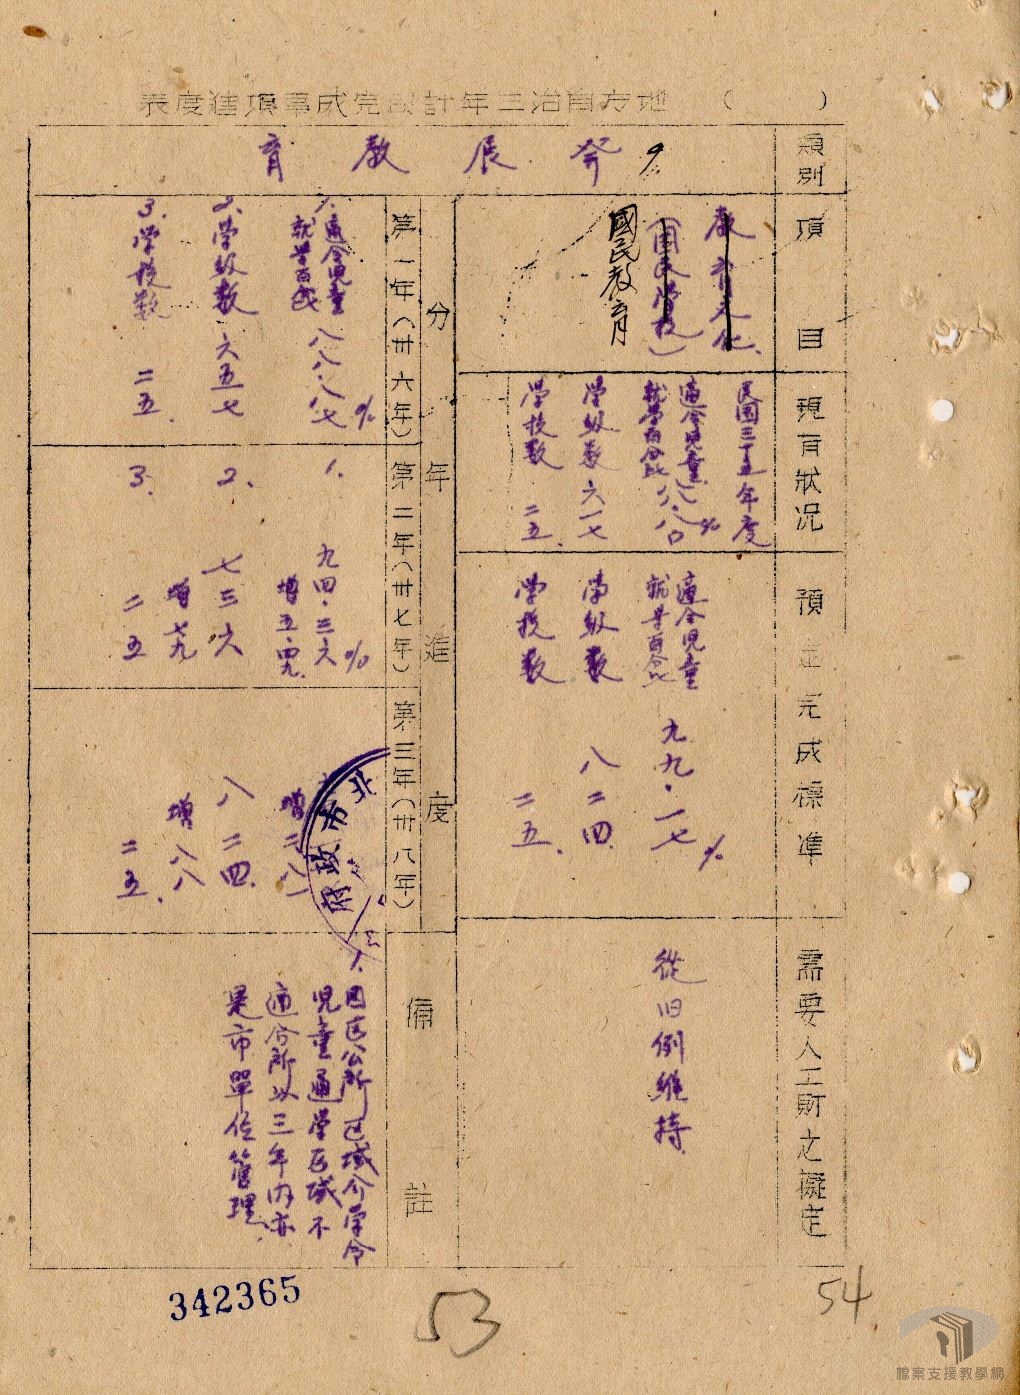 ( ) 地方自治三年計畫完成事項進度表
類別
9.發展教育
項目
教育文化
(國民學校)
國民教育
現有狀況
民國三十五年度
適令児童
就學百分比 八八.八〇%
學級數 六一七
學校數 二五.
預定完成標準
適令児童
就学百分比 九九.一七%
學級數 八二四
學校數 二五.
需要人工財之擬定
從旧例維持
分年進度
第一年(卅六年)
1.適令児童
就學百分比 八八.八七%
2.學級數 六五七
3.学校數 二五.
第二年(卅七年)
1. 九四.三六%
增五.四九
2. 七三六
增七九
3. 二五
第三年(卅八年)
增 八一
八二四
增八八
二五.
北市政府
備註
1.因区公所区域分学令
児童通学区域不
適合所以三年內亦
是市單位管理
342365
53
54
檔案支援教學網